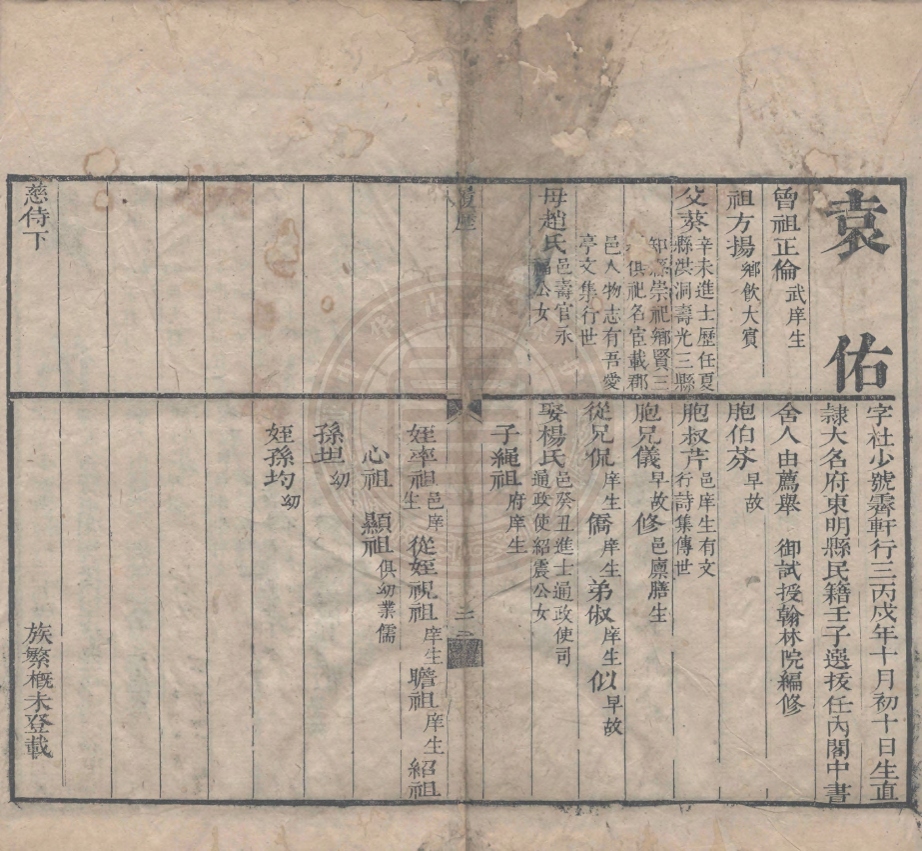 袁佑
字社少號霽軒行三丙戌年十月初十日生直
隷大名府東明縣民籍壬子選拔任內閣中書
舍人由薦舉 御試授翰林院編修
曾祖正倫武庠生
祖方揚鄉飲大賓
父葵辛未進士歷任夏
縣洪洞壽光三縣
知縣崇祀鄉賢三
俱祀名宦載郡
邑人物志有吾愛
亭文集行世
母趙氏邑壽官永
福公女
胞伯芬早故
胞叔芹邑庠生有文
行詩集傳世
胞兄儀早故修邑廩膳生
從兄侃庠生僑庠生弟俶庠生似早故
娶楊氏邑癸丑進士通政使司
通政使紹震公女
子繩祖府庠生
履歷
二
姪率祖邑庠生從姪祝祖庠生瞻祖庠生紹祖
心祖 顯祖俱幼業儒
孫坦幼
姪孫均幼
慈侍下
族繁概未登載